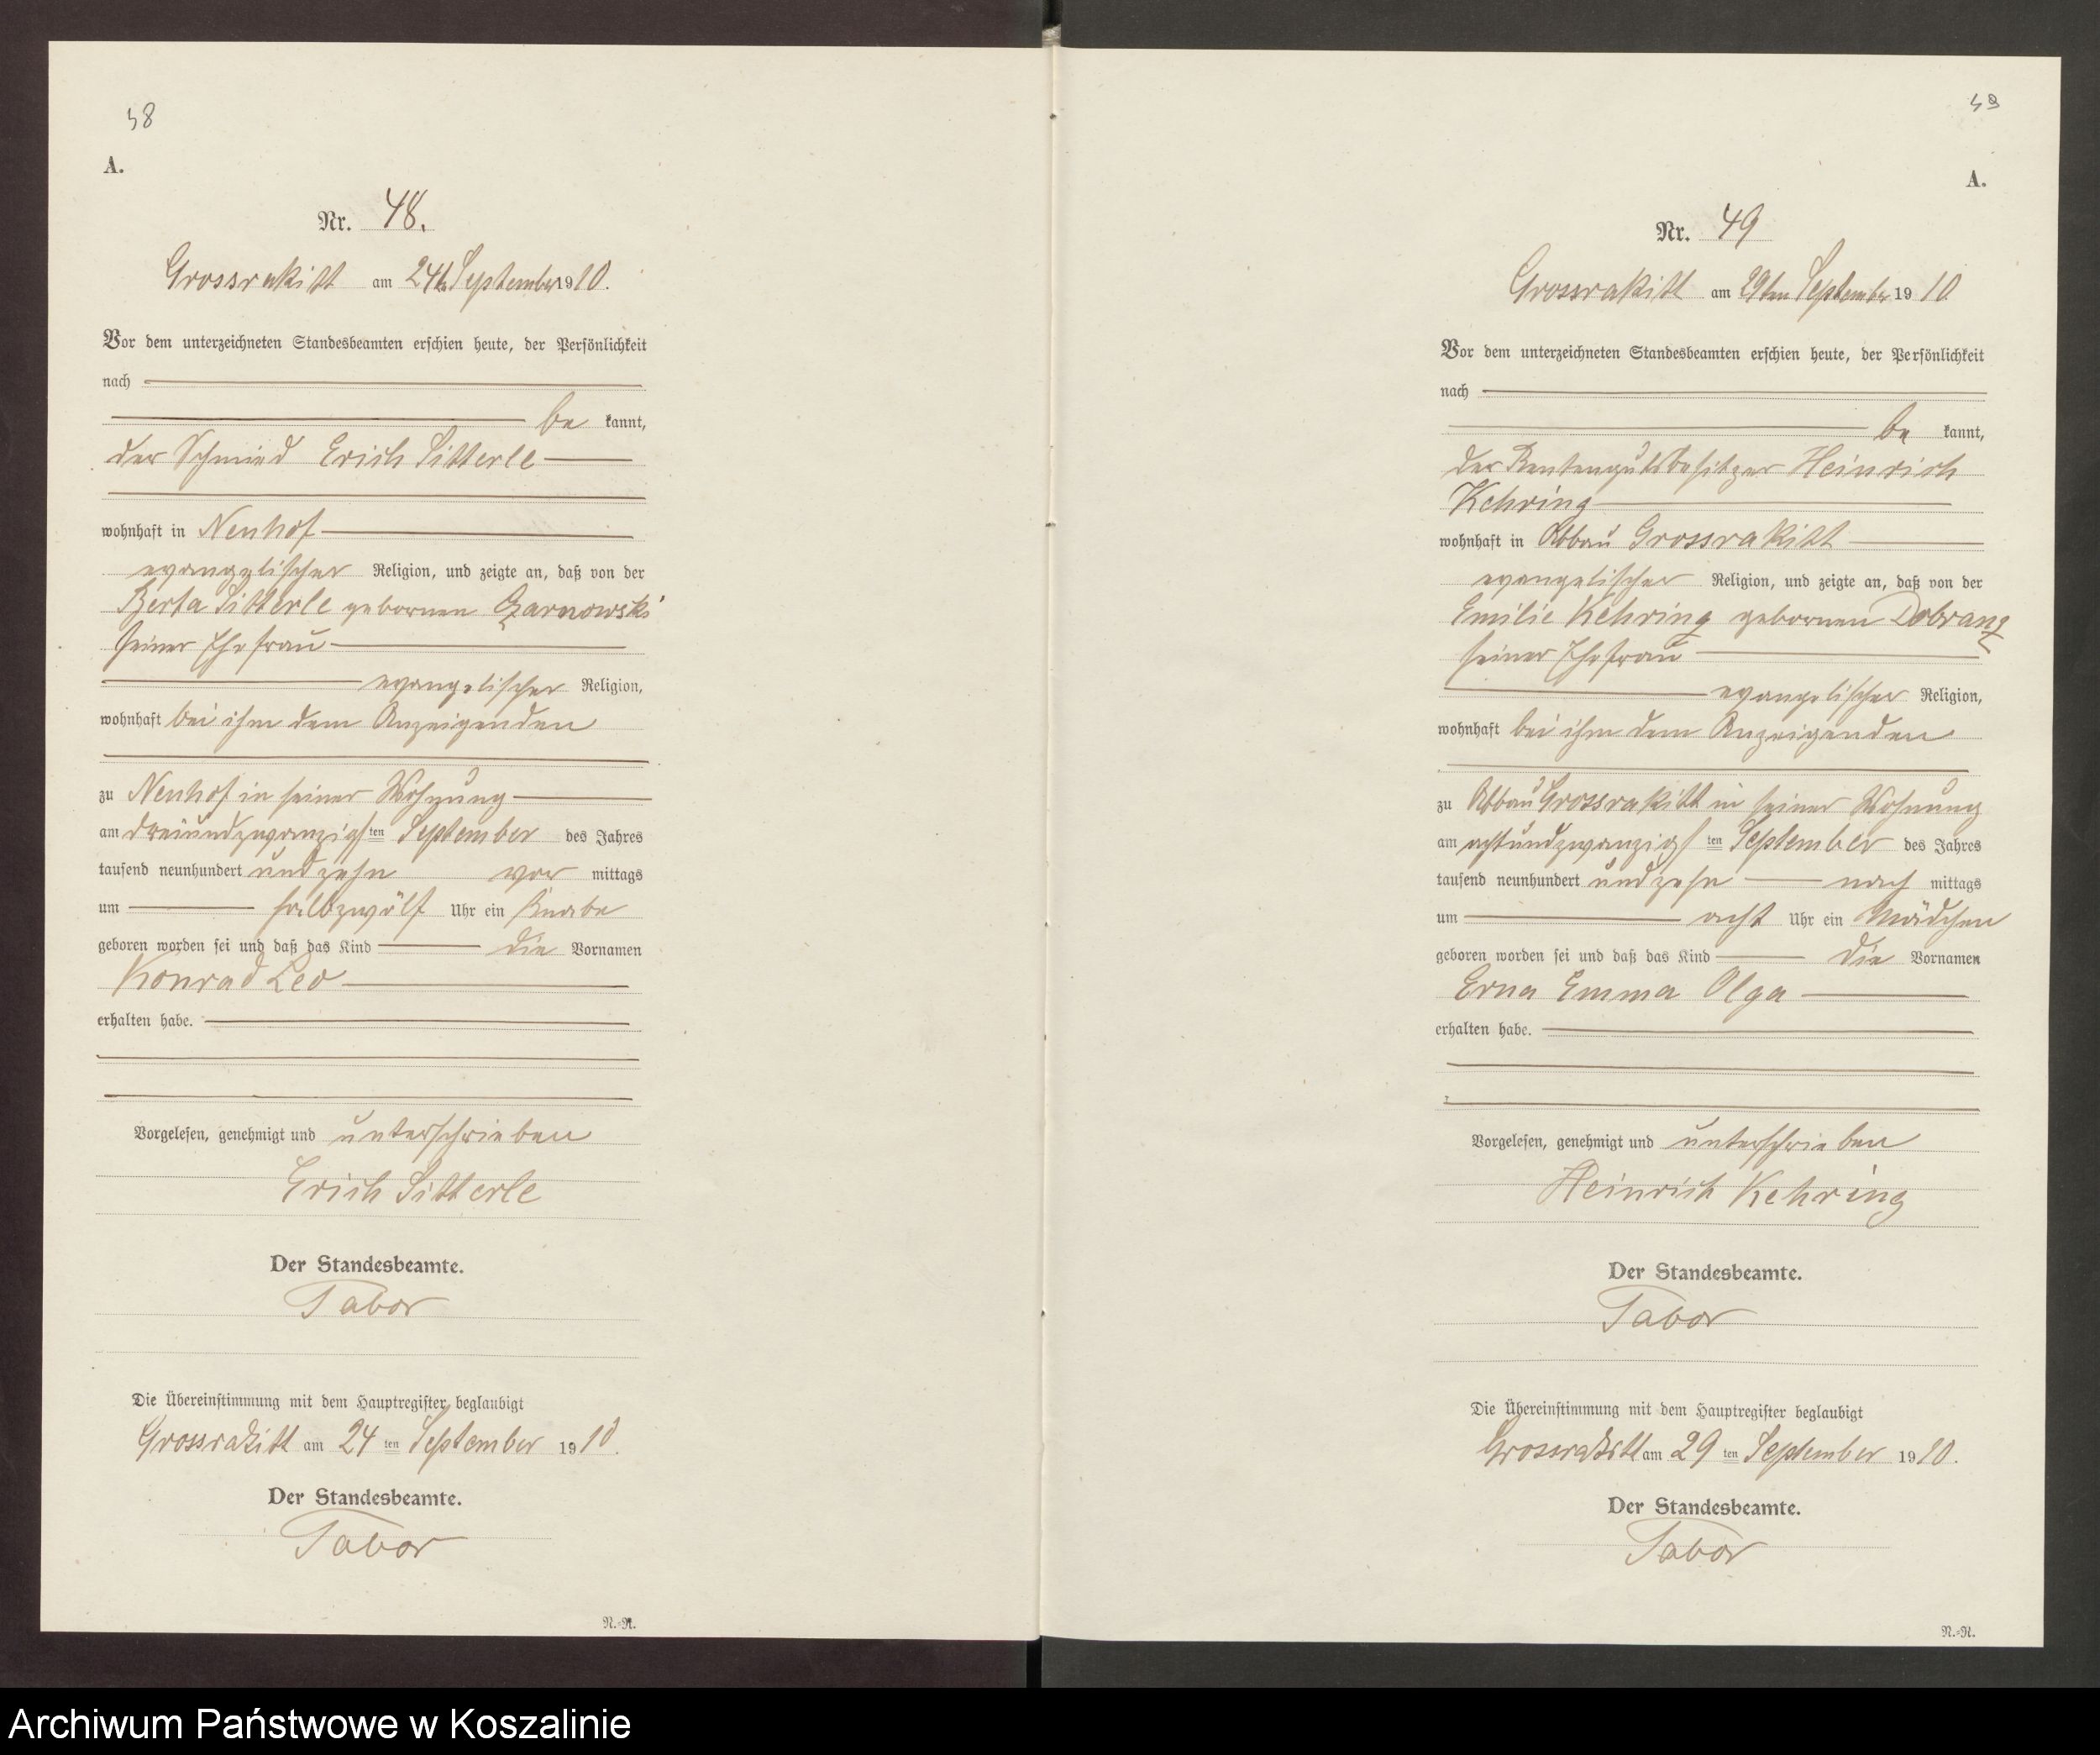 48
A.
Nr. 48.
Grossrakitt am 24ten September 1910.
Vor dem unterzeichneten Standesbeamten erschien heute, der Persönlichkeit
nach
be kannt,
der Schmied Erich Sitterle
wohnhaft in Neuhof
evangelischer Religion, und zeigte an, daß von der
Berta Sitterle gebornen Czarnowski
seiner Ehefrau
evangelischer Religion,
wohnhaft bei ihm dem Anzeigenden
zu Neuhof in seiner Wohnung
am dreiundzwanzigsten September des Jahres
tausend neunhundert und zehn vor mittags
um halbzwölf Uhr ein Knabe
geboren worden sei und daß das Kind die Vornamen
Konrad Leo
erhalten habe.
Vorgelesen, genehmigt und unterschrieben
Erich Sitterle
Der Standesbeamte.
Tabor
Die Übereinstimmung mit dem Hauptregister beglaubigt
Grossrakitt am 24 ten September 1910.
Der Standesbeamte.
Tabor
N.=N.
49
A.
Nr. 49
Grossrakitt am 29ten September 1910
Vor dem unterzeichneten Standesbeamten erschien heute, der Persönlichkeit
nach
be kannt,
der Rentengutsbesitzer Heinrich
Kehring
wohnhaft in Abbau Grossrakitt
evangelischer Religion, und zeigte an, daß von der
Emilie Kehring gebornen Dobranz
seiner Ehefrau
evangelischer Religion,
wohnhaft bei ihm dem Anzeigenden
zu Abbau Grossrakitt in seiner Wohnung
am achtundzwanzigsten September des Jahres
tausend neunhundert und zehn nach mittags
um acht Uhr ein Mädchen
geboren worden sei und daß das Kind die Vornamen
Erna Emma Olga
erhalten habe.
Vorgelesen, genehmigt und unterschrieben
Heinrich Kehring
Der Standesbeamte.
Tabor
Die Übereinstimmung mit dem Hauptregister beglaubigt
Grossrakitt am 29 ten September 1910.
Der Standesbeamte.
Tabor
N.=N.
Archiwum Państwowe w Koszalinie